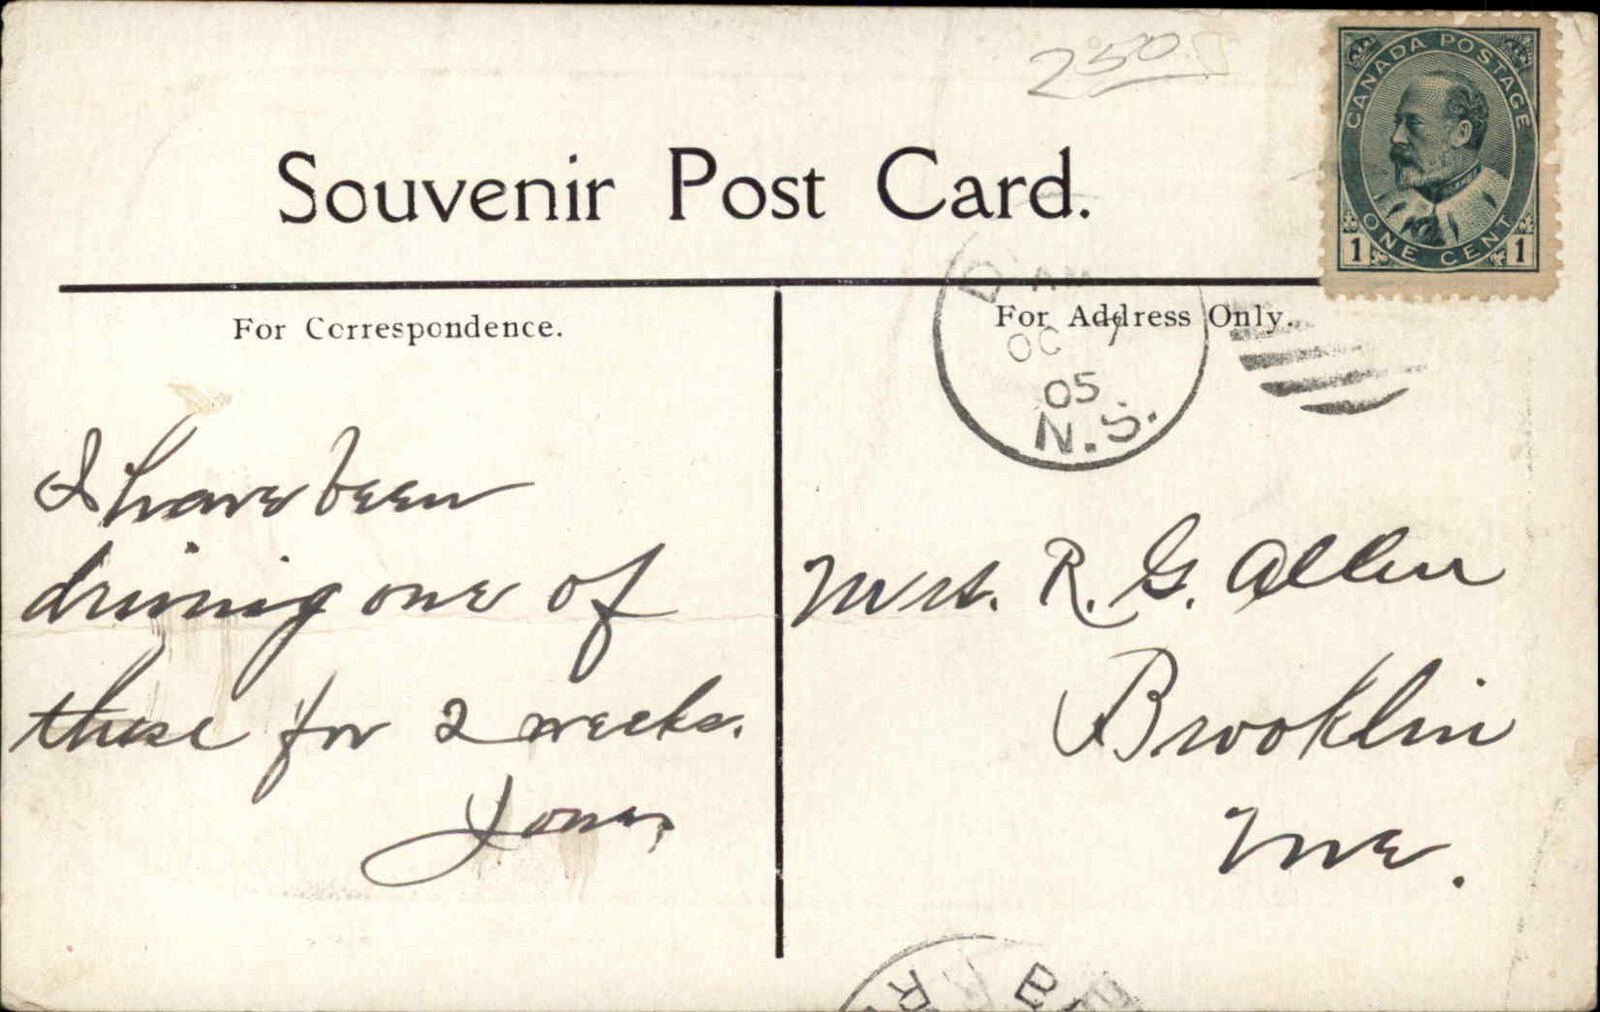 250
CANADA POSTAGE
ONE CENT
1 1
Souvenir Post Card.
For Correspondence.
For Address Only.
OC 7
05
N.S.
I have been
driving one of
these for 2 weeks.
Mrs. R. G. Allen
Brooklin
Me.